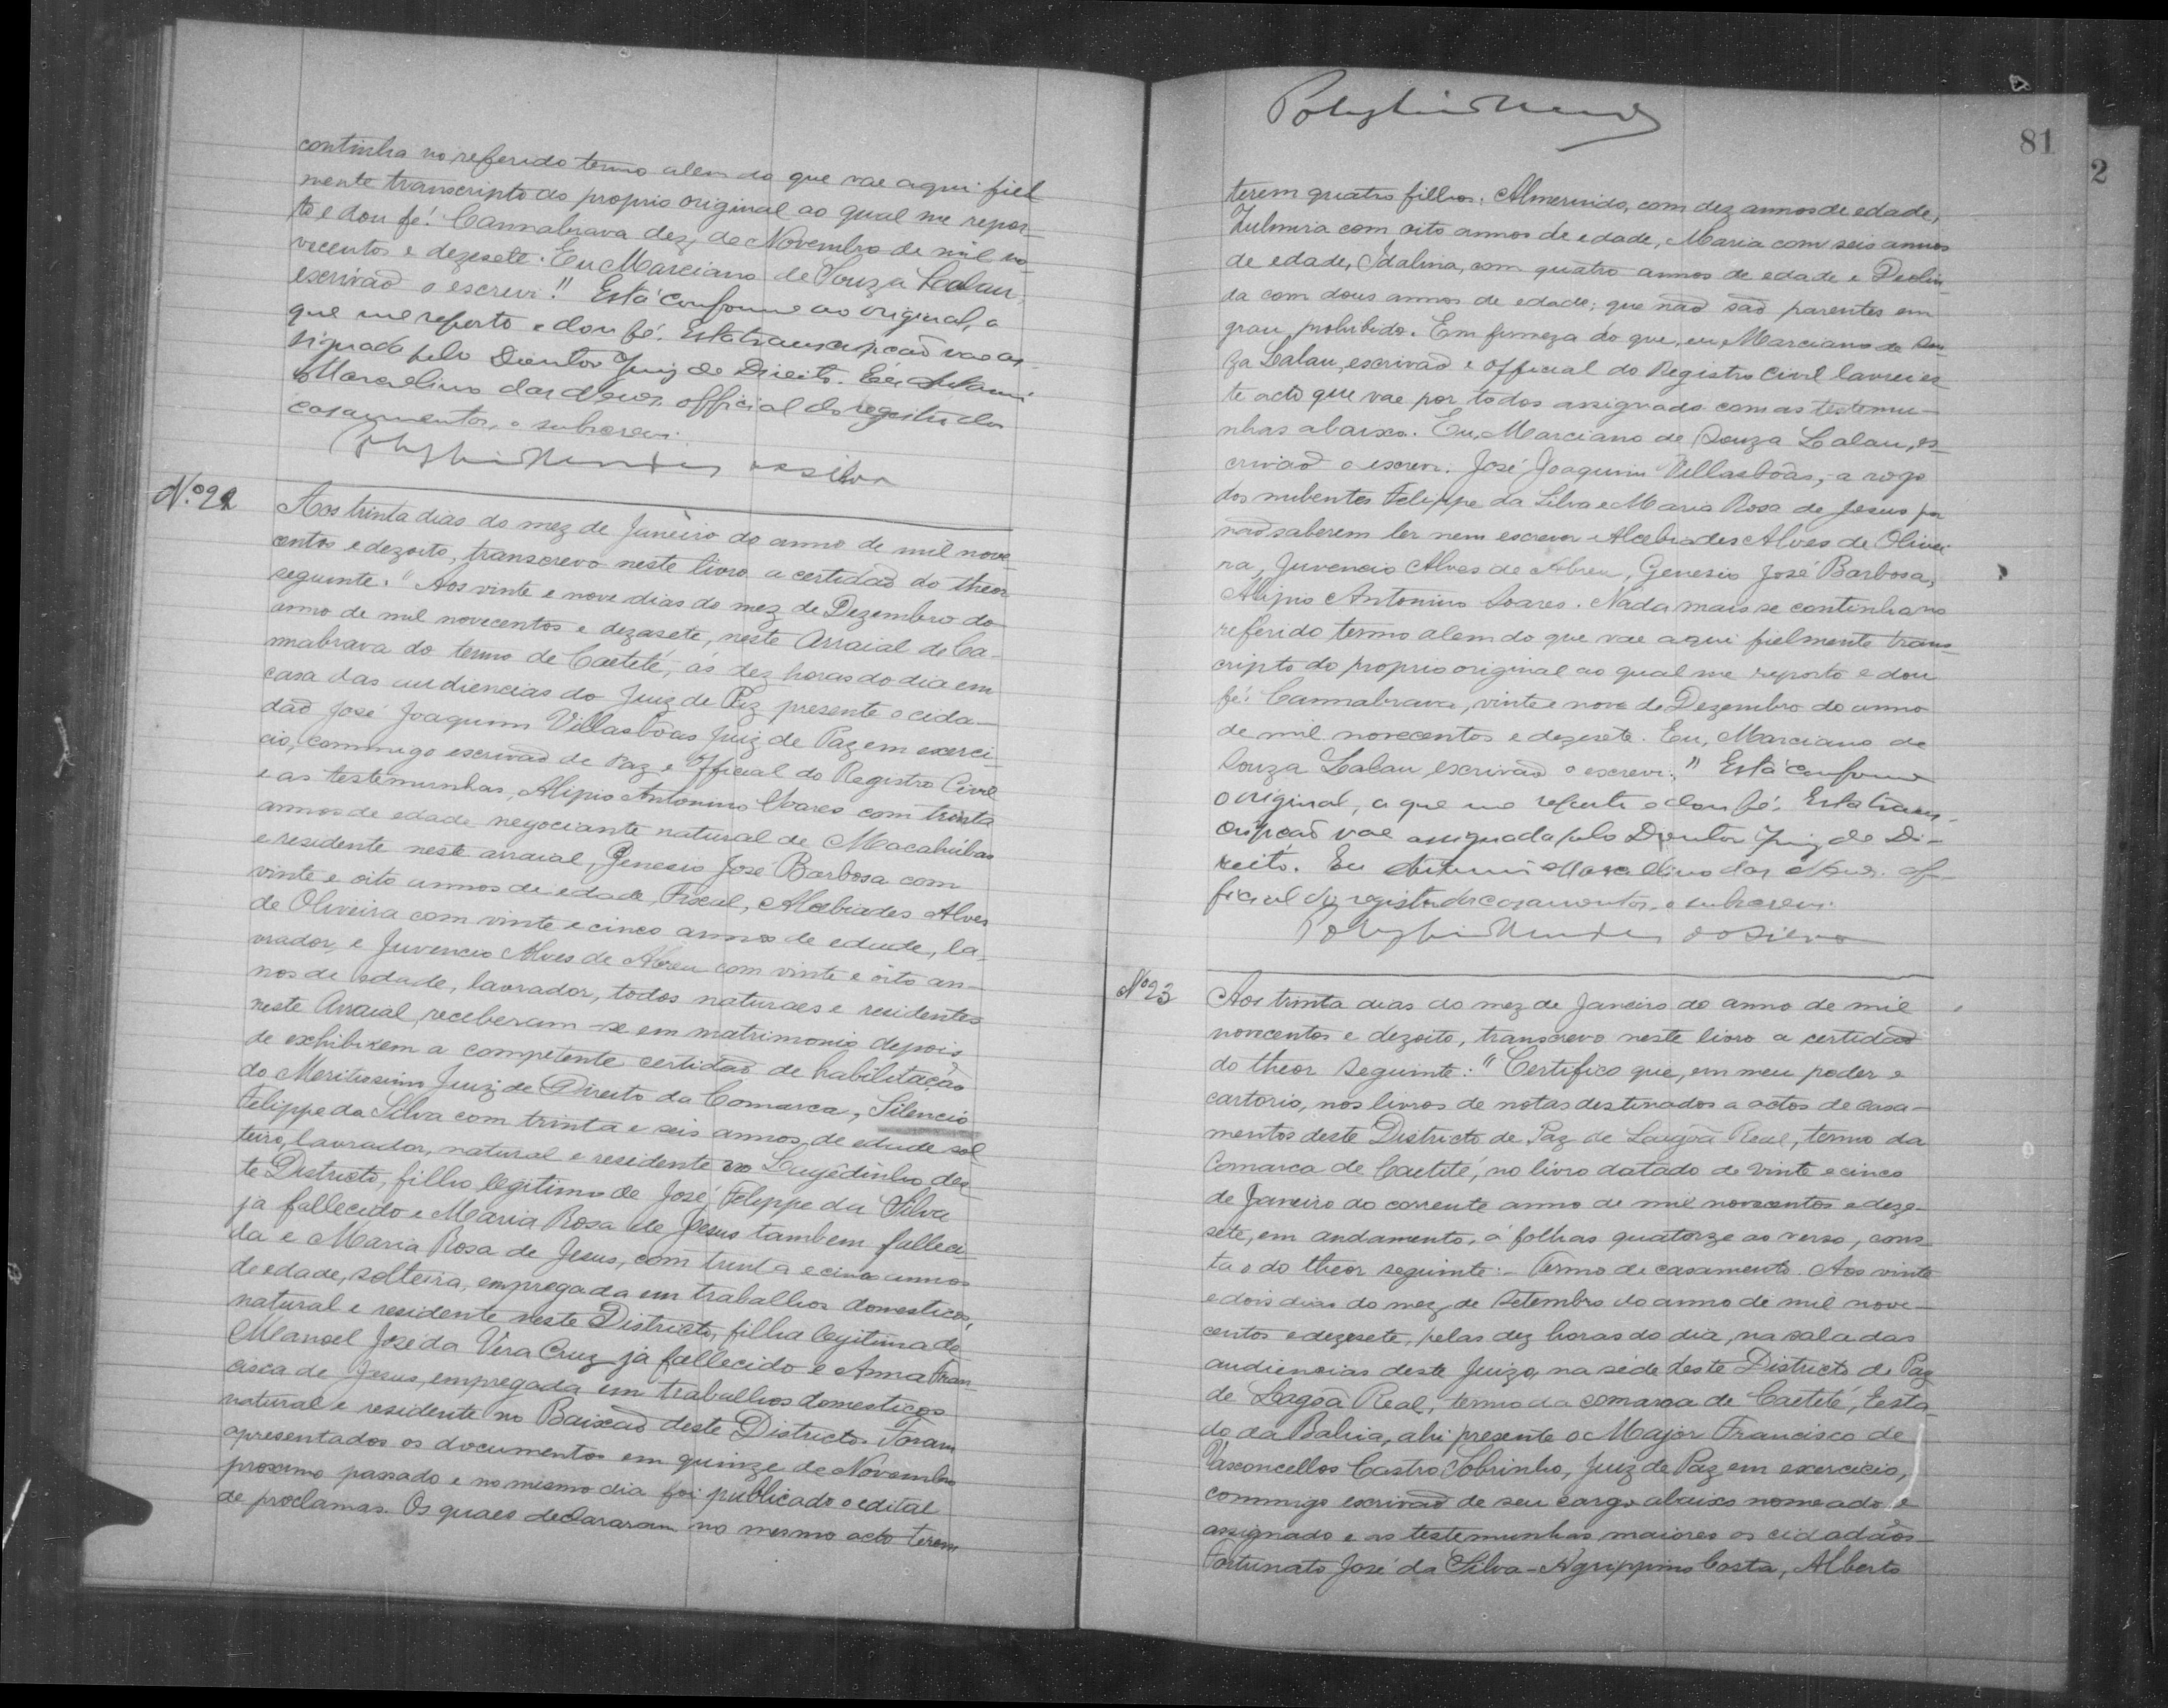 continha no referido termo alem do que vae aqui fiel
mente transcripto do proprio original ao qual me repor-
to e dou fé! Cannabrava dez, de Novembro de mil no-
vecentos e dezesete. Eu Marciano de Souza Lalau,
escrivaõ o escrevi!! Está conforme ao original, a
que me reporto e dou fé. Esta transcripçaõ vae as-
signada pelo Doutor Juiz de Direito. Eu
Marcelino das Neves, official do registro dos
casamentos, o subscrevi.
da Silva
N.º 22
Aos trinta dias do mez de Janeiro do anno de mil nove
centos e dezoito, transcrevo neste livro a certidaõ do theor
seguinte: "Aos vinte e nove dias do mez de Dezembro do
anno de mil novecentos e dezasete, neste Arraial de Ca-
nnabrava do termo de Caeteté, ás dez horas do dia em
casa das audiencias do Juiz de Paz presente o cida-
daõ José Joaquim Villasbôas Juiz de Paz em exerci-
cio, commigo escrivaõ de Paz e Official do Registro Civil
e as testemunhas, Alipio Antonino Soares com trinta
annos de edade negociante natural de Macahúbas
e residente neste arraial, Genesio José Barbosa com
vinte e oito annos de edade, Fiscal, Alcebiades Alves
de Oliveira com vinte e cinco annos de edade, la-
vrador, e Juvencio Alves de Abreu com vinte e oito an-
nos de edade, lavrador, todos naturaes e residentes
neste Arraial, receberam-se em matrimonio depois
de exhibirem a competente certidaõ de habilitação
do Meritissimo Juiz de Direito da Comarca, Silencio
Felippe da Silva com trinta e seis annos, de edade sol
teiro, lavrador, natural e residente no Lagêdinho des-
te Districto, filho legitimo de José Felippe da Silva
ja fallecido e Maria Rosa de Jesus tambem falleci
da e Maria Rosa de Jesus, com trinta e cinco annos
de edade, solteira, empregada em trabalhos domesticos,
natural e residente neste Districto, filha legitima de
Manoel José da Vera Cruz já fallecido e Anna Fran-
cisca de Jesus, empregada em trabalhos domesticos
natural e residente no Baixaõ deste Districto. Foram
apresentados os documentos em quinze de Novembro
proximo passado e no mesmo dia foi publicado o edital
de proclamas. Os quaes declararam no mesmo acto terem
81
2
terem quatro filhos: Almerindo, com dez annos de edade,
Zulmira com oito annos de edade, Maria com seis annos
de edade, Idalina, com quatro annos de edade e Deolin
da com dous annos de edade; que naõ saõ parentes em
grau prohibido. Em firmeza do que, eu, Marciano de Sou-
za Lalau, escrivaõ e official do Registro Civil lavrei es-
te acto que vae por todos assignado com as testemu-
nhas abaixo. Eu, Marciano de Souza Lalau, es-
crivaõ o escrevi. José Joaquim Villasbôas, a rogo
dos nubentes Felippe da Silva e Maria Rosa de Jesus por
naõ saberem ler nem escrever Alcebiades Alves de Olivei-
ra, Juvencio Alves de Abreu, Genesio José Barbosa,
Alipio Antonino Soares. Nada mais se continha no
referido termo alem do que vae aqui fielmente trans-
cripto do proprio original ao qual me reporto e dou
fé: Cannabrava, vinte e nove de Dezembro do anno
de mil novecentos e dezesete. Eu, Marciano de
Souza Lalau escrivaõ o escrevi." Está conforme
o original, a que me reporto e dou fé. Esta trans-
cripçaõ vae assignada pelo Doutor Juiz de Di-
reito. Eu Antonio Marcellino das Neves. of-
ficial do registro de casamentos, o subscrevi.
da Silva
Nº 23
Aos trinta dias do mez de Janeiro do anno de mil
novecentos e dezoito, transcrevo neste livro a certidaõ
do theor seguinte: "Certifico que, em meu poder e
cartorio, nos livros de notas destinados a actos de casa-
mentos deste Districto de Paz de Laugôa Real, termo da
Comarca de Caetité, no livro datado de vinte e cinco
de Janeiro do corrente anno de mil novecentos e deze-
sete, em andamento, á folhas quatorze ao verso, cons-
ta o do theor seguinte:- Termo de casamento. Aos vinte
e dois dias do mez de Setembro do anno de mil nove-
centos e dezesete, pelas dez horas do dia, na sala das
audiencias deste Juizo, na séde deste Districto de Paz
de Lagôa Real, termo da comarca de Caeteté, Esta-
do da Bahia, ahi presente o Major Francisco de
Vasconcellos Castro Sobrinho, Juiz de Paz em exercicio,
commigo escrivaõ de seu cargo abaixo nomeado e
assignado e as testemunhas, maiores os cidadãos
Fortunato José da Silva-Agrippino Costa, Alberto